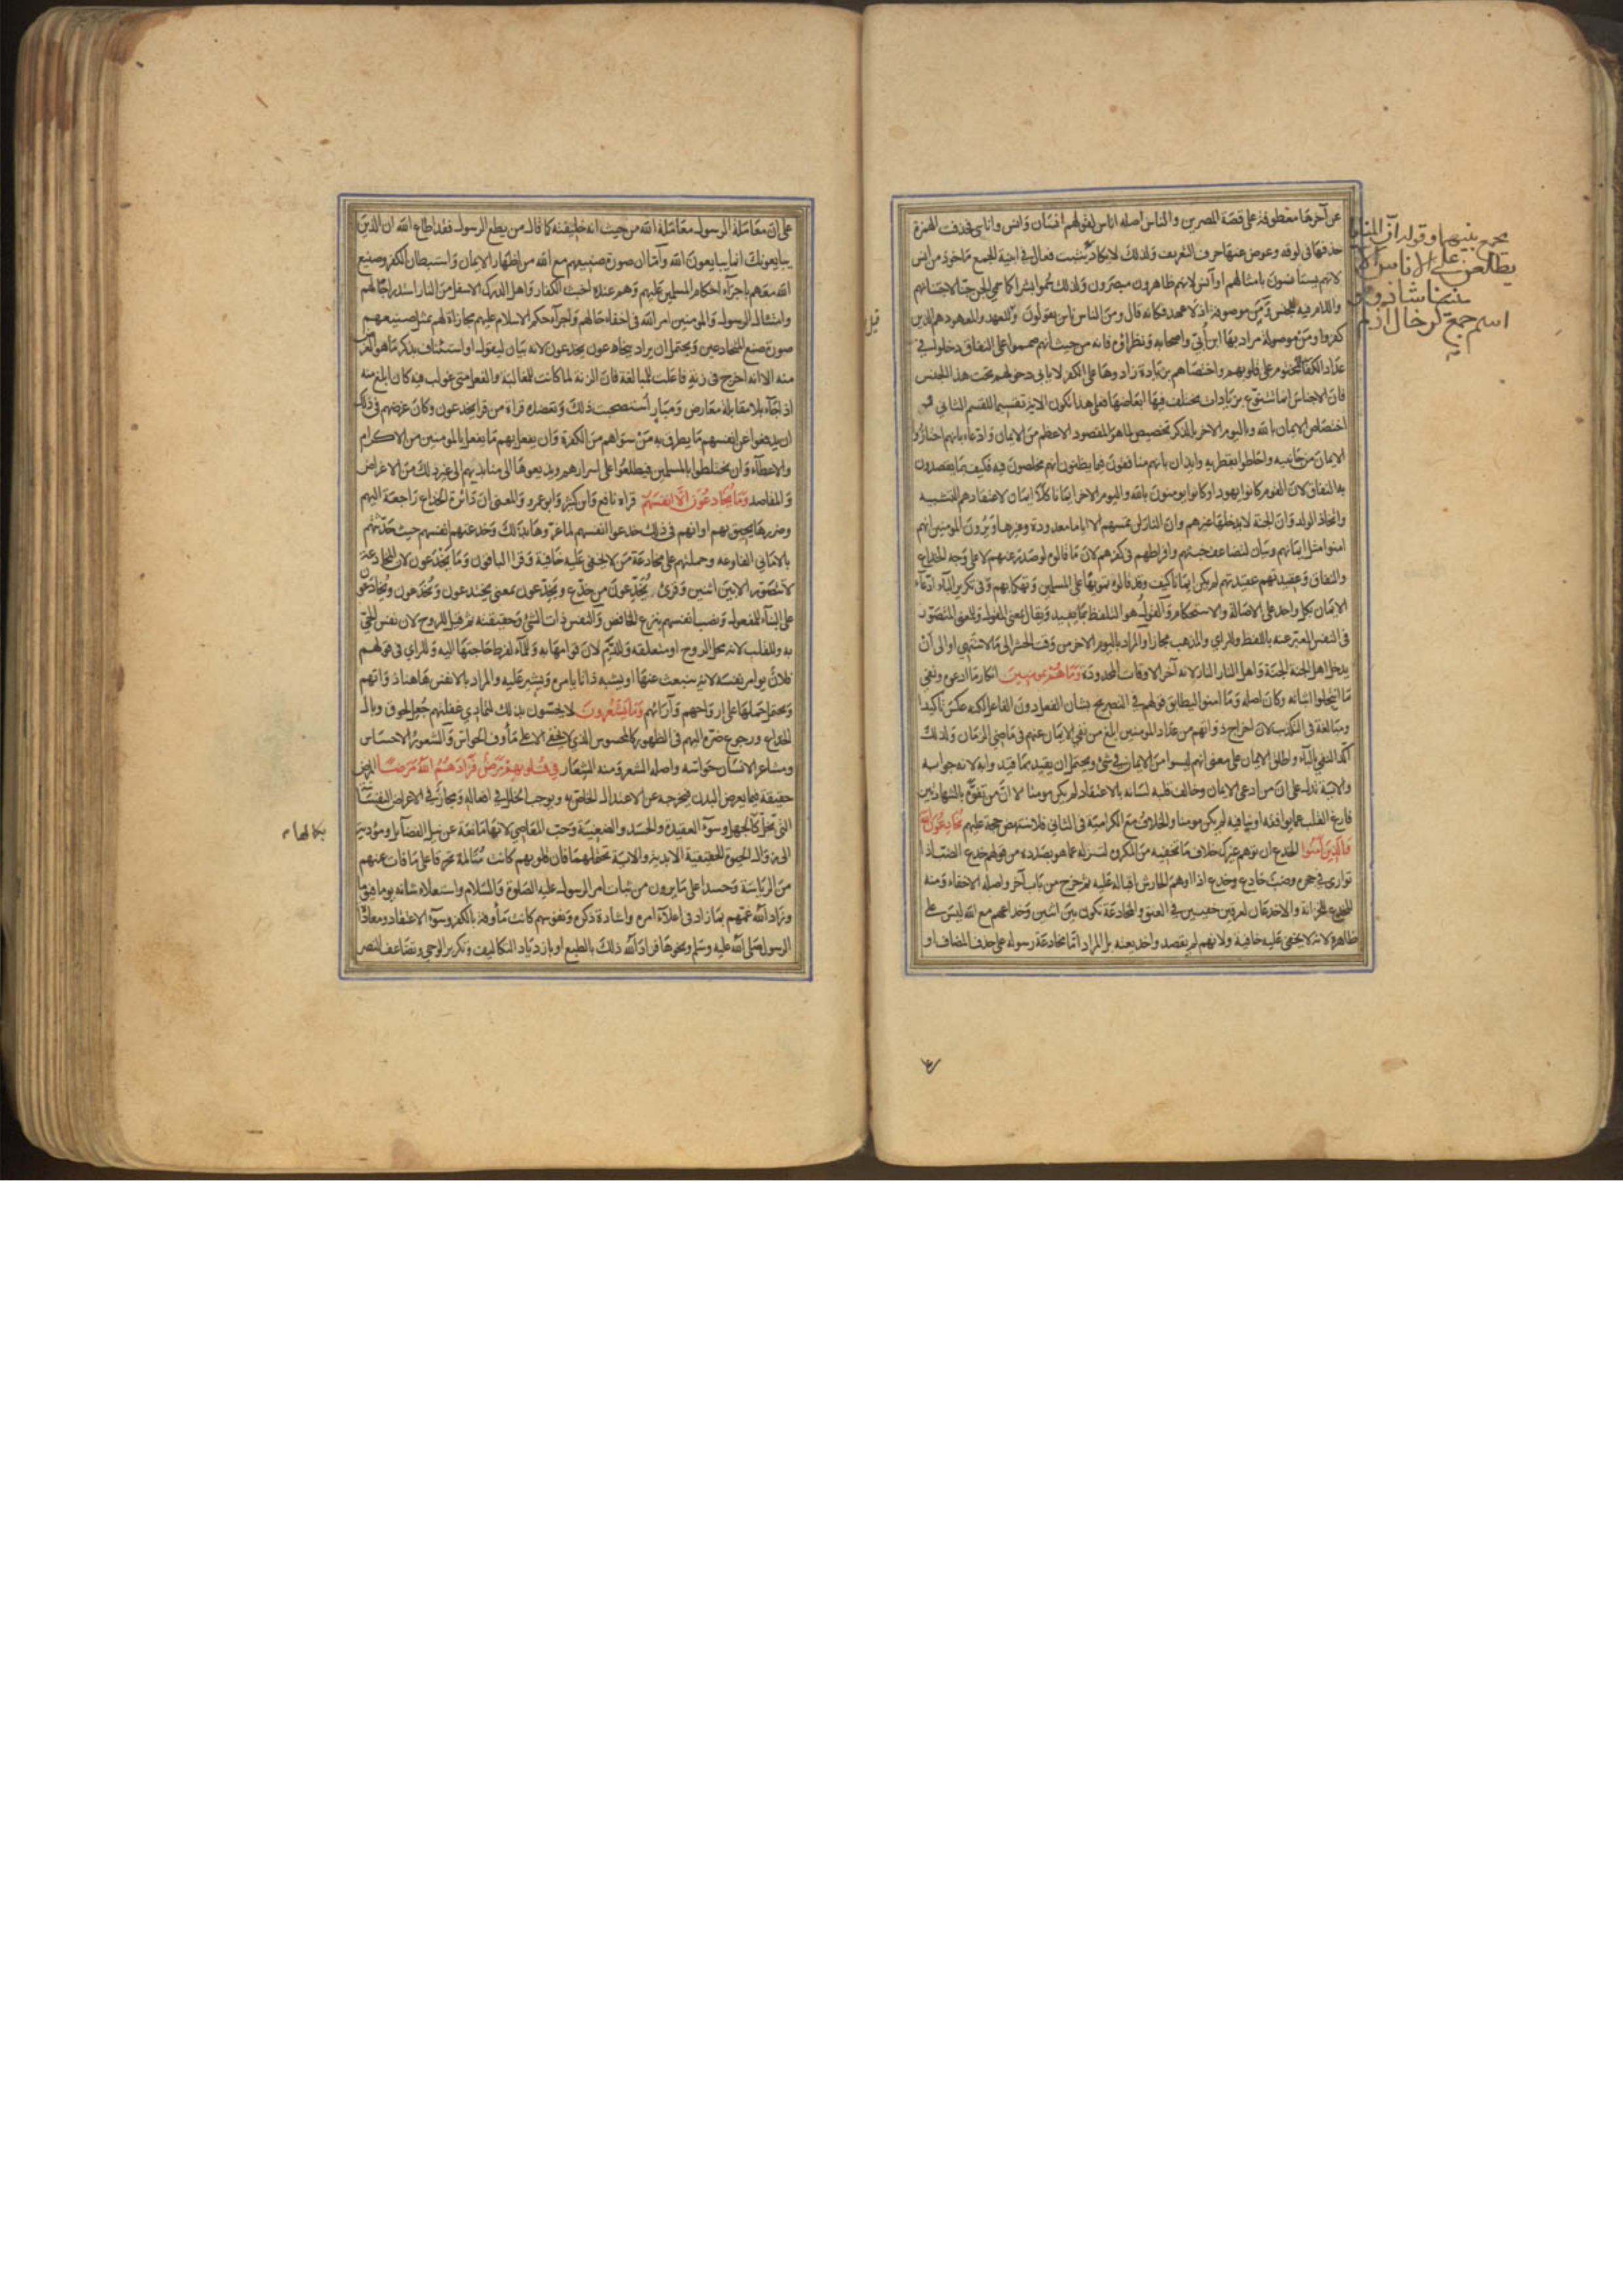 عن آخرها معطوفة على قصة المصرين والناس اصله اناس لقولهم انسان وانس واناسي فحذفت الهمزة
حذفها في لوقة وعوض عنها حرف التعريف ولذلك لا يكاد يجمع
بينهما وقوله ان المنايا
يطلعن على الاناس الآ
منينا شاذ وهو
اسم جمع كرخال اذ لم
يثبت فعال في ابنية الجمع ماخوذ من انس
لانهم يستأنسون بامثالهم او آنس لانهم ظاهرون مبصرون ولذلك سموا بشرا كما سمي الجن جنا لاجتنانهم
واللام فيه للجنس ومن موصوفة اذ لا عهد فكانه قال ومن الناس ناس يقولون وقيل للعهد والمعهود هم الذين
كفروا ومن موصولة مراد بها ابن أبي واصحابه ونظراؤه فانه من حيث انهم صمموا على النفاق دخلوا في
عداد الكفار المختوم على قلوبهم واختصاصهم بزيادة زادوها على الكفر لا يابى دخولهم تحت هذا الجنس
فان الاجناس انما تتنوع بزيادات يختلف فيها ابعاضها فعلى هذا تكون الاية تقسيما للقسم الثاني
اختصاص الايمان بالله وباليوم الاخر بالذكر تخصيص لما هو المقصود الاعظم من الايمان وادعاء بانهم احتازوا
الايمان من جانبيه واحاطوا بقطريه وايذان بانهم منافقون فيما يظنون انهم مخلصون فيه فكيف بما يقصدون
به النفاق لان القوم كانوا يهودا وكانوا يومنون بالله واليوم الاخر ايمانا كلا ايمان لاعتقادهم التشبيه
واتخاذ الولد وان الجنة لا يدخلها غيرهم وان النار لن تمسهم الا اياما معدودة وغيرها ويرون المومنين انهم
امنوا مثل ايمانهم وبيان لتضاعف خبثهم وافراطهم في كفرهم لان ما قالوه لو صدر عنهم لا على وجه الخداع
والنفاق وعقيدتهم عقيدتهم لم يكن ايمانا كيف وقد قالوه تمويها على المسلمين وتهكما بهم وفي تكرير الباء ادعاء
الايمان بكل واحد على الاصالة والاستحكام والقول هو التلفظ بما يفيد ويقال بمعنى المقول وللمعنى المتصور
في النفس المعبر عنه باللفظ وللراي والمذهب مجازا والمراد باليوم الاخر من وقت الحشر الى ما لا ينتهي او الى ان
يدخل اهل الجنة الجنة واهل النار النار لانه آخر الاوقات المحدودة وما هم بمومنين انكار ما ادعوه ونفي
ما انتحلوا اثباته وكان اصله وما امنوا ليطابق قولهم في التصريح بشان الفعل دون الفاعل لكنه عكس تاكيدا
ومبالغة في التكذيب لان اخراج ذواتهم من عداد المومنين ابلغ من نفي الايمان عنهم في ماضي الزمان ولذلك
اكد النفي بالباء واطلق الايمان على معنى انهم ليسوا من الايمان في شئ ويحتمل ان يقيد بما قيد وابه لانه جوابه
والاية تدل على ان من ادعى الايمان وخالف قلبه لسانه بالاعتقاد لم يكن مومنا لا ان من تفوه بالشهادتين
فارغ القلب عما يوافقه او ينافيه لم يكن مومنا والخلاف مع الكرامية في الثاني فلا ينتهض حجة عليهم يخادعون الله
والذين آمنوا الخدع ان توهم غيرك خلاف ما تخفيه من المكروه لتنزله عما هو بصدده من قولهم خدع الضب اذا
توارى في جحره وضب خادع وخدع اذا اوهم الحارش اقباله عليه ثم خرج من باب آخر واصله الاخفاء ومنه
المخدع للخزانة والاخدعان لعرقين خفيين في العنق والمخادعة تكون بين اثنين وخداعهم مع الله ليس على
ظاهره لانه لا يخفى عليه خافية ولانهم لم يقصدوا خديعته بل المراد اما مخادعة رسوله على حذف المضاف او
على ان معاملة الرسول معاملة الله من حيث انه خليفته كما قال من يطع الرسول فقد اطاع الله ان الذين
يبايعونك انما يبايعون الله واما ان صورة صنيعهم مع الله من اظهار الايمان واستبطان الكفر وصنيع
الله معهم باجراء احكام المسلمين عليهم وهم عنده اخبث الكفار واهل الدرك الاسفل من النار استدراجا لهم
وامتثال الرسول والمومنين امر الله في اخفاء حالهم واجراء حكم الاسلام عليهم مجازاة لهم بمثل صنيعهم
صورة صنع المتخادعين ويحتمل ان يراد بيخادعون يخدعون لانه بيان ليقول او استئناف بذكر ما هو الغرض
منه الا انه اخرج في زنة فاعلت للمبالغة فان الزنة لما كانت للمغالبة والفعل متى غولب فيه كان ابلغ منه
اذا جاء بلا مقابلة معارض ومبار استصحبت ذلك وتعضده قراءة من قرا يخدعون وكان غرضهم في ذلك
ان يدفعوا عن انفسهم ما يطرق به من سواهم من الكفرة وان يفعل بهم ما يفعل بالمومنين من الاكرام
والاعطاء وان يختلطوا بالمسلمين فيطلعوا على اسرارهم ويذيعوها الى منابذيهم الى غير ذلك من الاغراض
والمقاصد وما يخادعون الا انفسهم قراه نافع وابن كثير وابو عمرو والمعنى ان دائرة الخداع راجعة اليهم
وضررها يحيق بهم او انهم في ذلك خدعوا انفسهم لما غروها بذلك وخدعتهم انفسهم حيث حدثتهم
بالاماني الفارغة وحملتهم على مخادعة من لا يخفى عليه خافية وقرا الباقون وما يخدعون لان المخادعة
لا تتصور الا بين اثنين وقرئ يخدعون من خدع ويخدعون بمعنى يختدعون ويخدعون ويخادعون
على البناء للمفعول ونصب انفسهم بنزع الخافض والنفس ذات الشئ وحقيقته ثم قيل للروح لان نفس الحي
به وللقلب لانه محل الروح او متعلقه وللدم لان قوامها به وللماء لفرط حاجتها اليه وللراي في قولهم
فلان يوامر نفسه لانه ينبعث عنها او يشبه ذاتا يامره ويشير عليه والمراد بالانفس هاهنا ذواتهم
ويحتمل حملها على ارواحهم وآرائهم وما يشعرون لا يحسون بذلك لتمادي غفلتهم جعل لحوق وبال
الخداع ورجوع ضرره اليهم في الظهور كالمحسوس الذي لا يخفى الا على مأوف الحواس والشعور الاحساس
ومشاعر الانسان حواسه واصله الشعر ومنه الشعار في قلوبهم مرض فزادهم الله مرضا المرض
حقيقة فيما يعرض البدن فيخرجه عن الاعتدال الخاص به ويوجب الخلل في افعاله ومجاز في الاعراض النفسانية
التي تخل بكمالها كالجهل وسوء العقيدة والحسد والضغينة وحب المعاصي لانها مانعة عن نيل الفضائل ومؤدية
الى زوال الحيوة الحقيقية الابدية والاية تحتملهما فان قلوبهم كانت متالمة تحرقا على ما فات عنهم
من الرياسة وحسدا على ما يرون من ثبات امر الرسول عليه الصلوة والسلام واستعلاء شانه يوما فيوما
وزاد الله غمهم بما زاد في اعلاء امره واشادة ذكره ونفوسهم كانت مأوفة بالكفر وسوء الاعتقاد ومعاداة
الرسول صلى الله عليه وسلم ونحوها فزاد الله ذلك بالطبع او بازدياد التكاليف وتكرير الوحي وتضاعف النصر